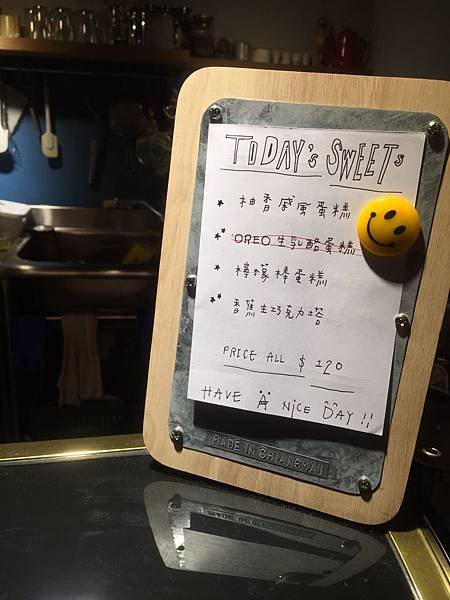 TODAY's SWEETs
★ 柚香戚風蛋糕
★★ OREO生乳酪蛋糕
★ 檸檬棒蛋糕
★★ 香蕉生巧克力塔
PRICE ALL $ 120
HAVE A NiCE DAY!!
MADE IN CHIANGMAI